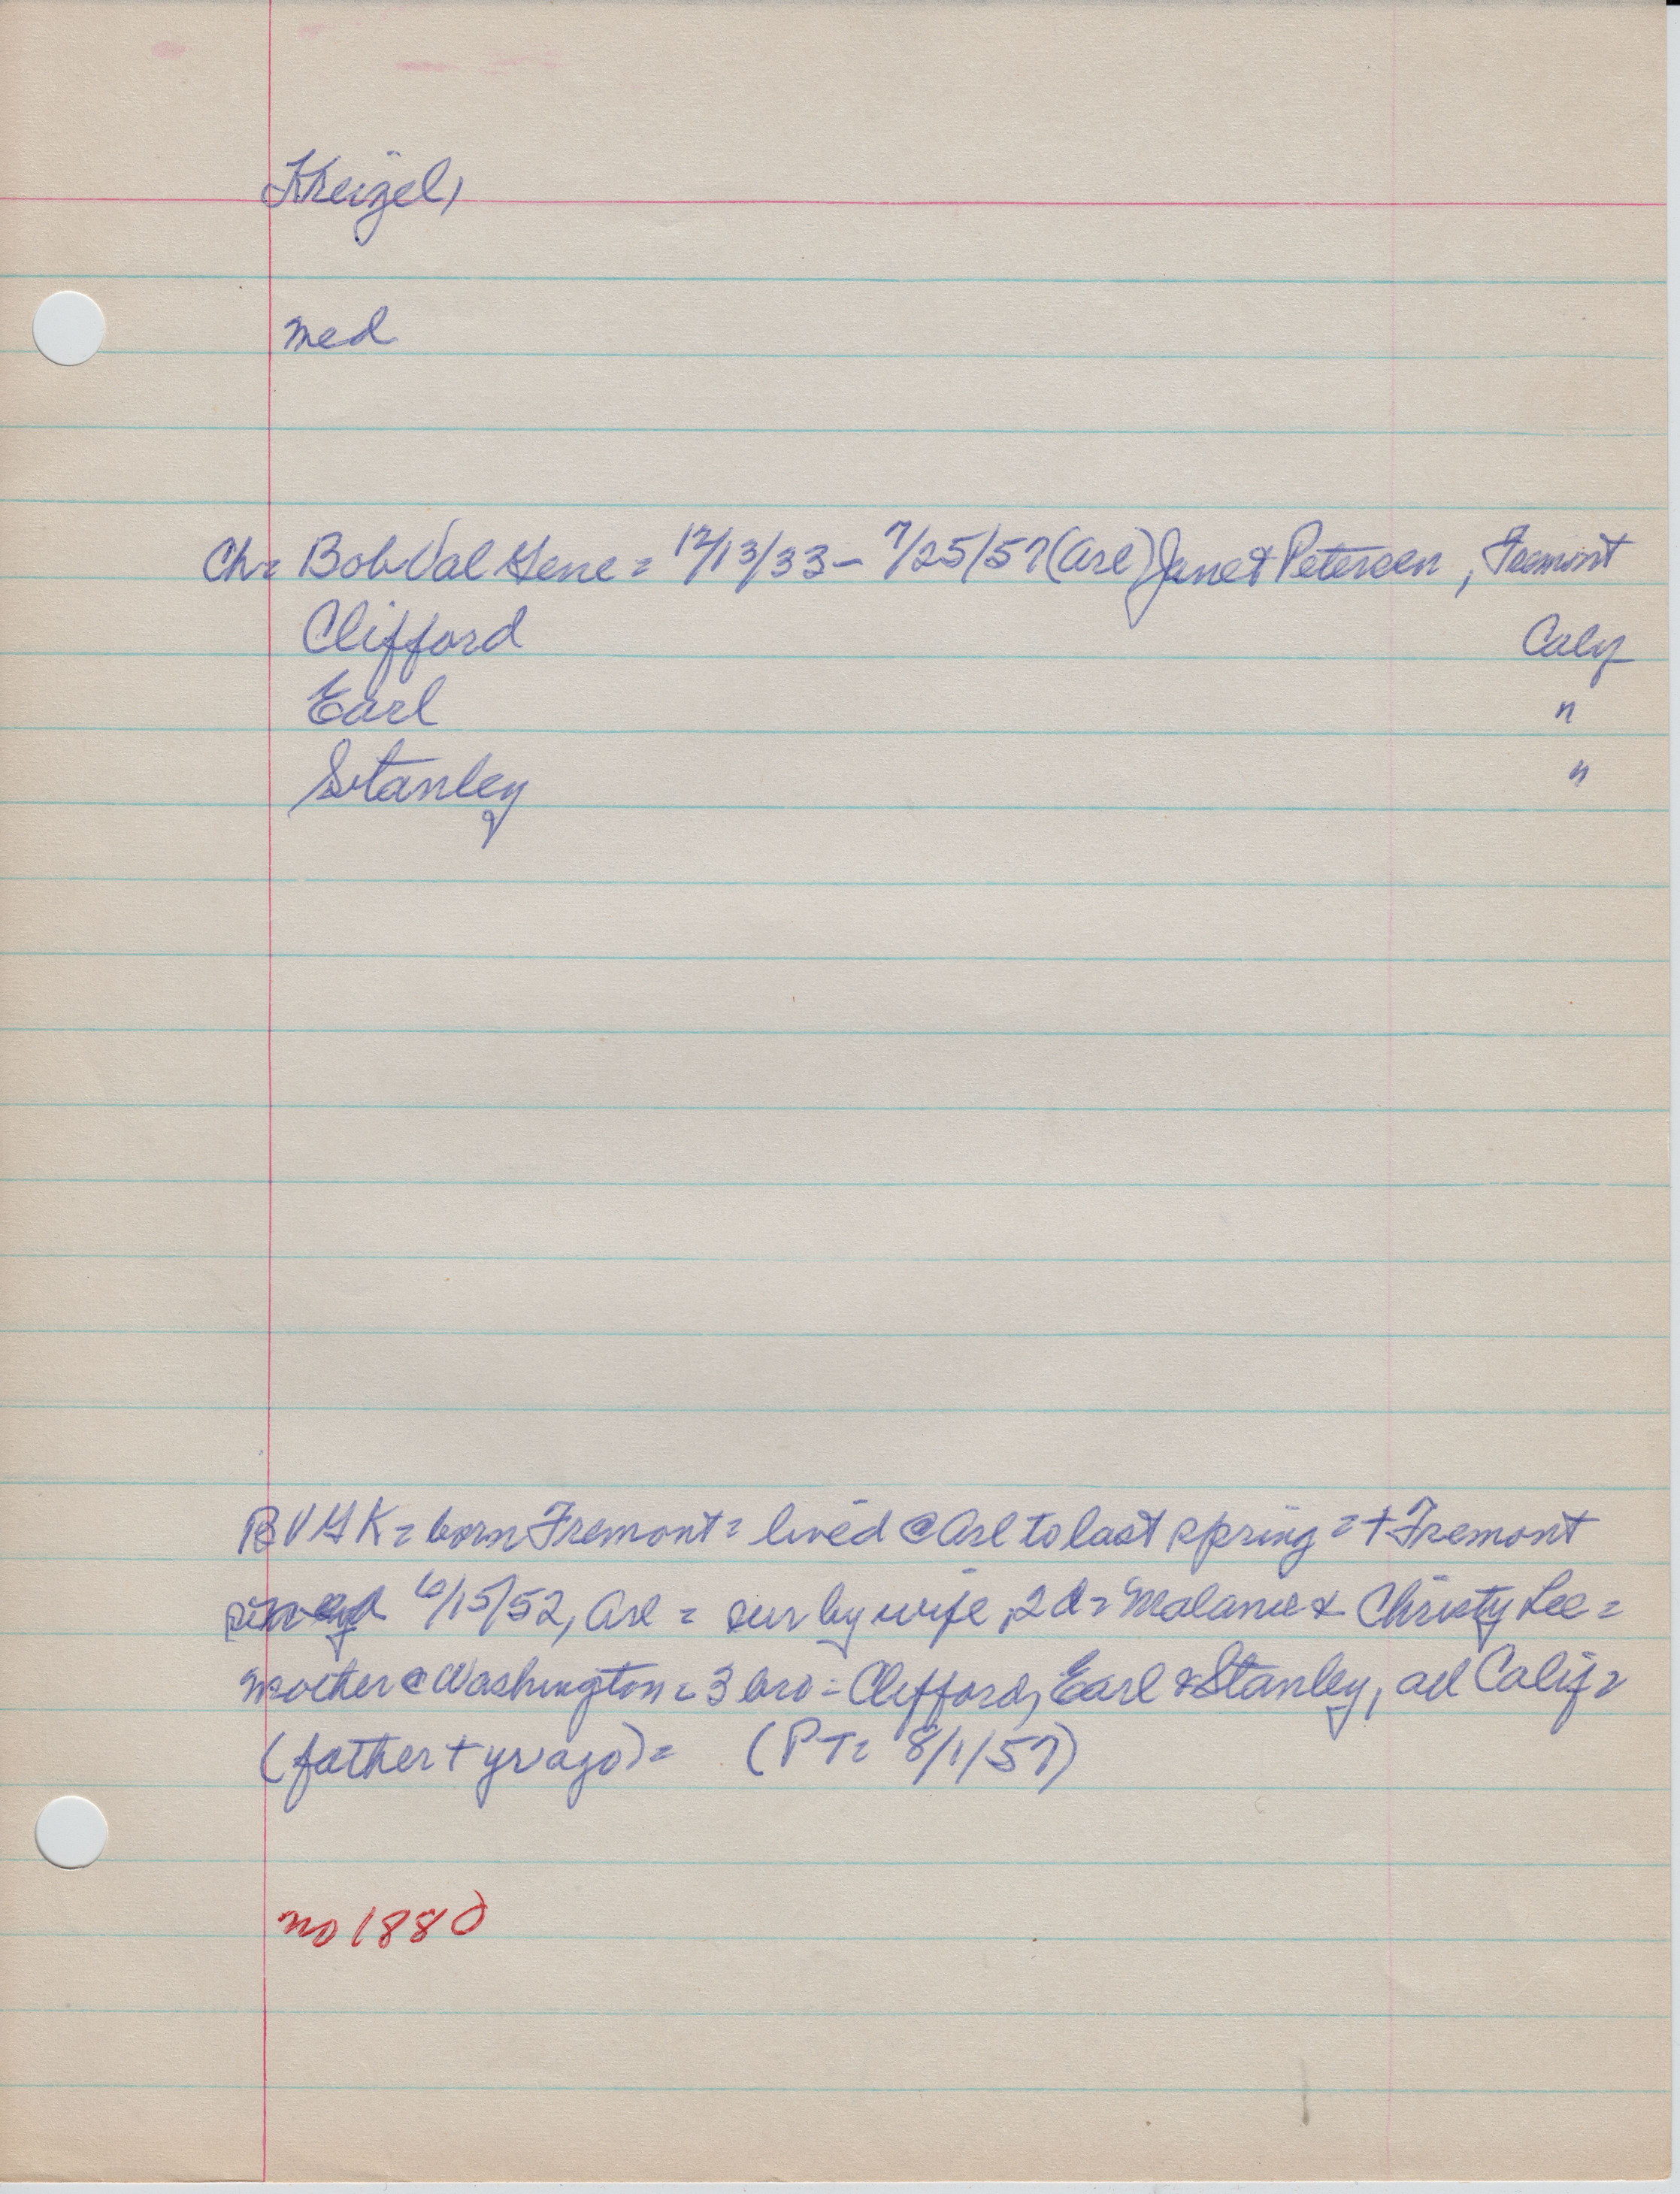 Kreizel,
med
Ch= Bob Val Gene = 12/13/33 - 7/25/57 (Arl) Janet Petersen, Fremont
Clifford Calif
Earl "
Stanley "
BVGK = born Fremont = lived @ Arl to last spring = + Fremont
6/15/52, Arl = sur by wife, 2 d = Malanie & Christy Lee =
mother @ Washington = 3 bro - Clifford, Earl & Stanley, all Calif =
(father + yr ago) = (PT= 8/1/57)
no 1880